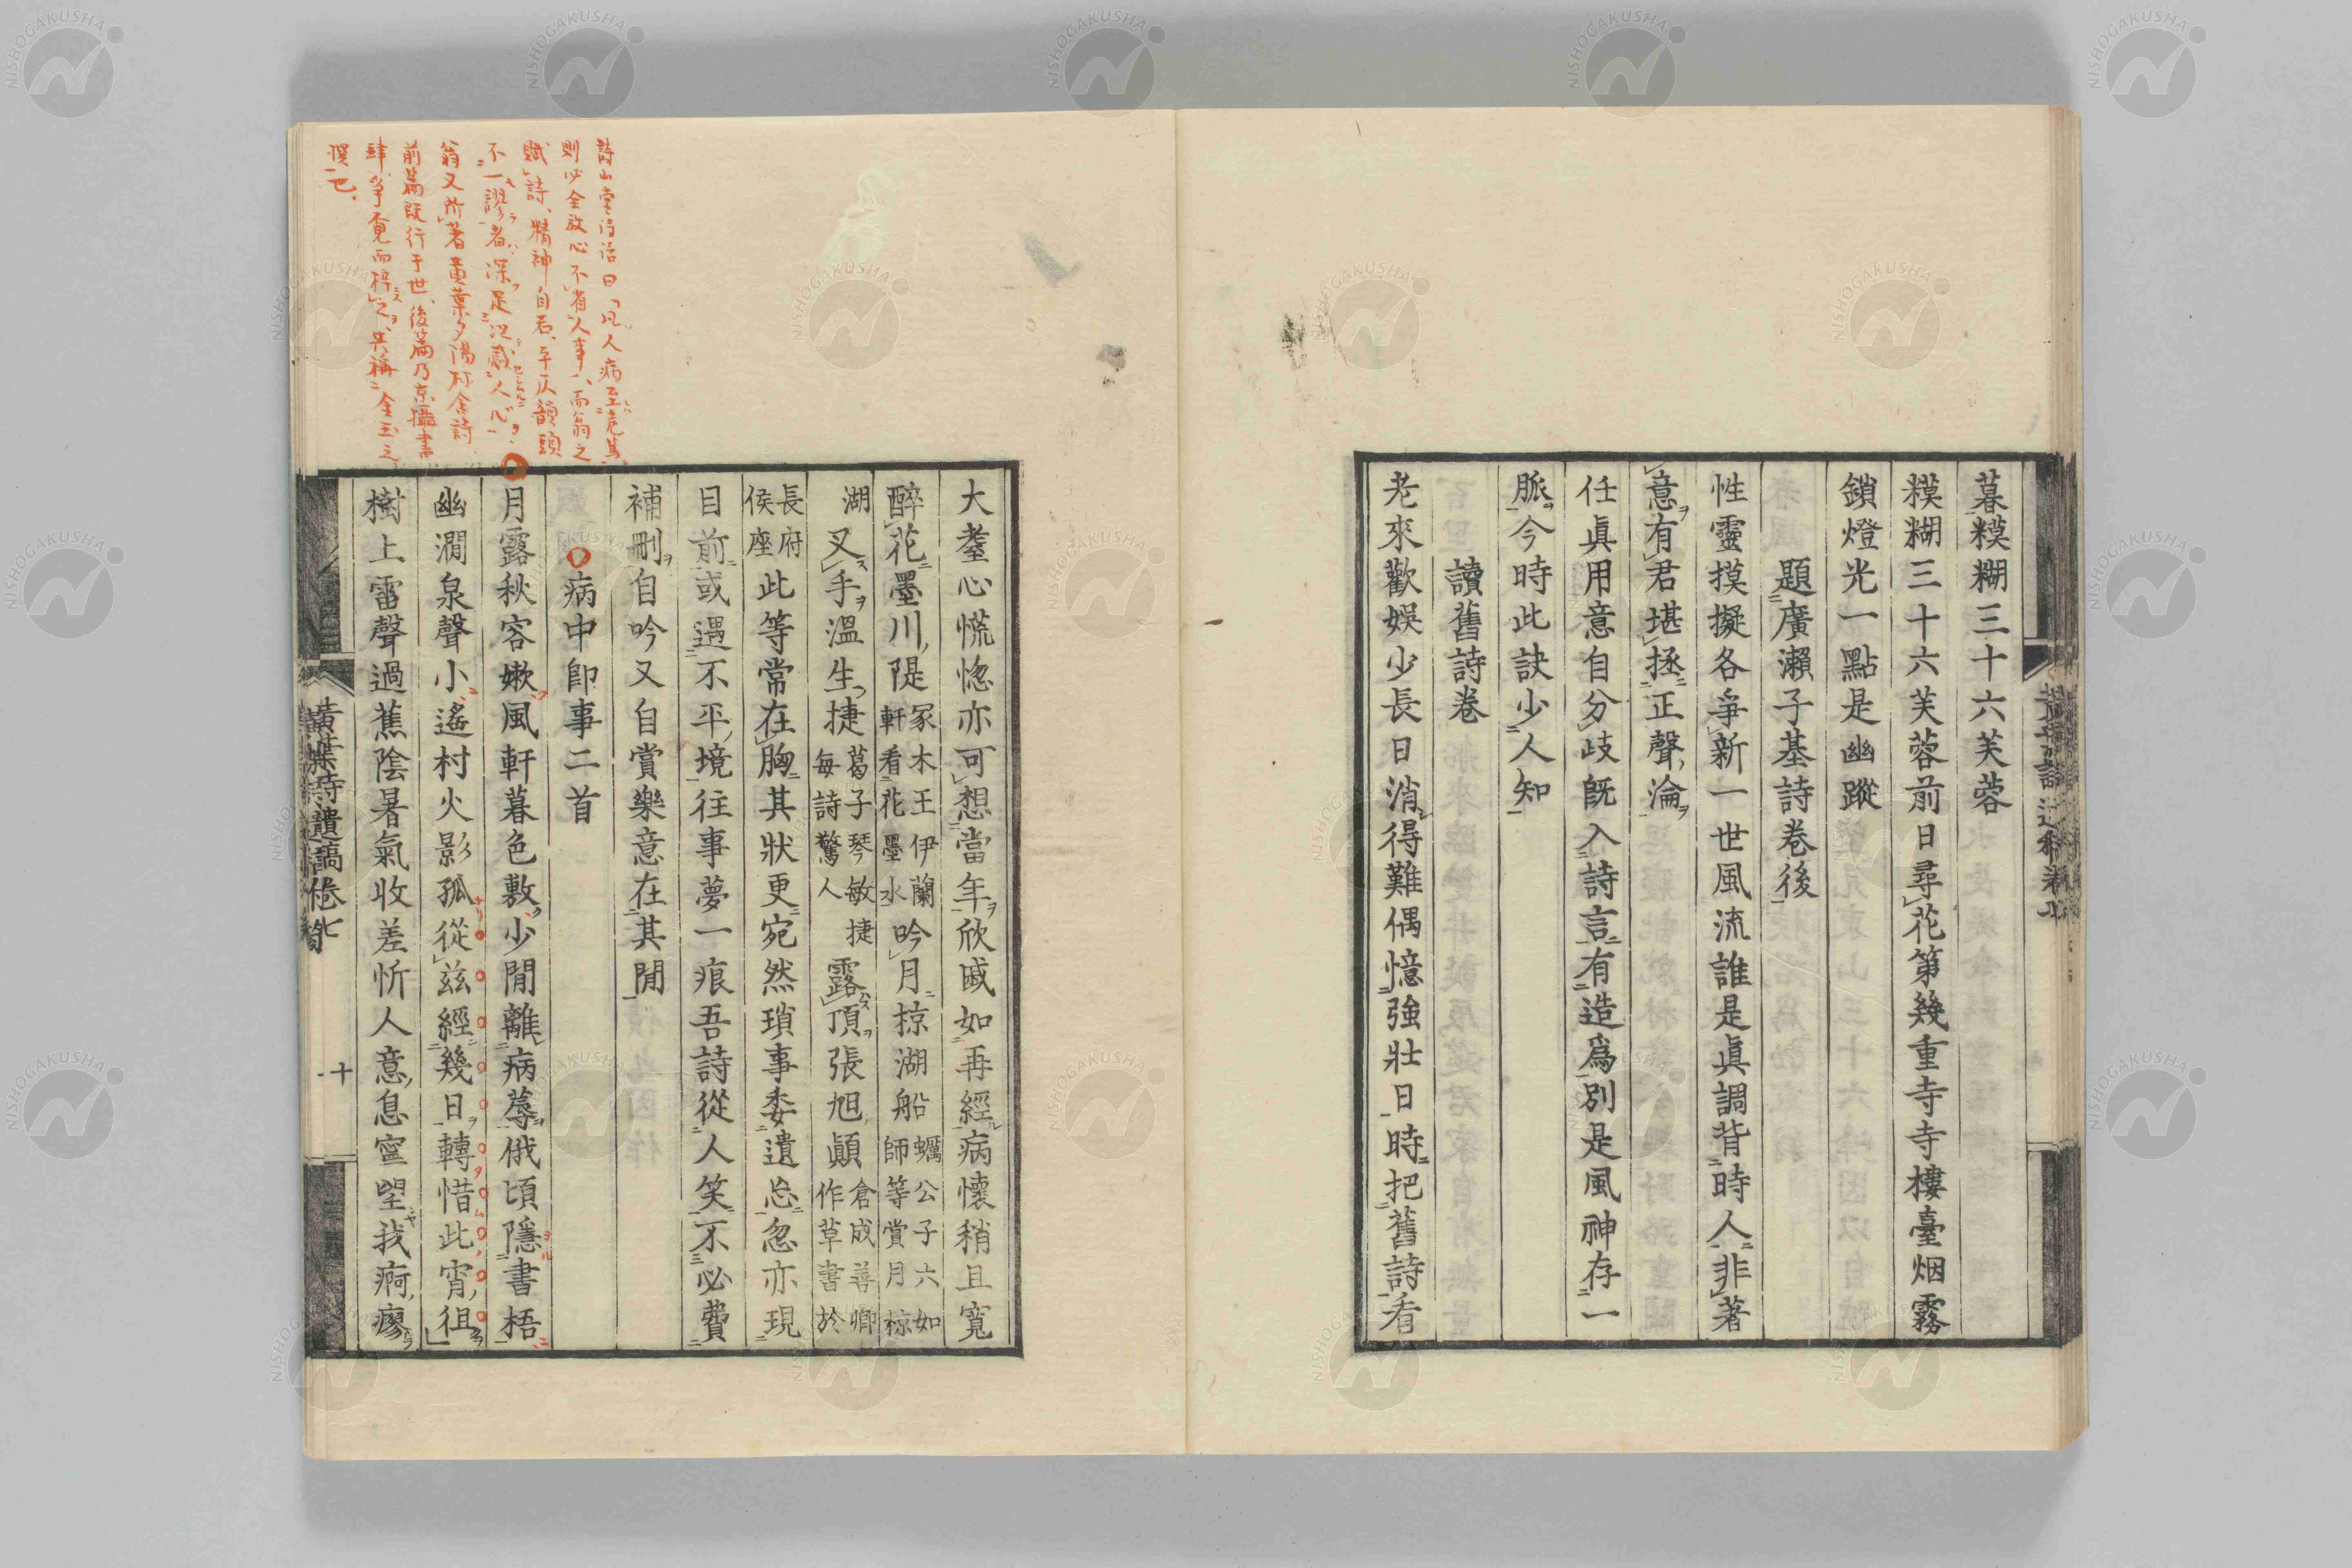 暮糢糊三十六芙蓉
糢糊三十六芙蓉前日尋花第幾重寺寺樓臺烟霧
鎖燈光一點是幽蹤
題廣瀨子基詩卷後
性靈摸擬各爭新一世風流誰是眞調背時人非著
意有君堪拯正聲淪
任眞用意自分歧既入詩言有造爲別是風神存一
脈今時此訣少人知
讀舊詩卷
老來歡娛少長日消得難偶憶強壯日時把舊詩看
大耋心慌惚亦可想當年欣戚如再經病懷稍且寬
醉花墨川隄冢木王伊蘭軒看花墨水吟月椋湖船蠣公子六如師等賞月椋
湖叉手溫生捷葛子琴敏捷每詩驚人露頂張旭顚倉成善卿作草書於
長府侯座此等常在胸其狀更宛然瑣事委遺忘忽亦現
目前或遇不平境往事夢一痕吾詩從人笑不必費
補刪自吟又自賞樂意在其閒
病中卽事二首
月露秋容嫩風軒暮色敷少閒離病蓐俄頃隱書梧
幽澗泉聲小遙村火影孤從茲經幾日轉惜此宵徂
樹上雷聲過蕉陰暑氣收差忻人意息寧望我痾瘳
黃葉詩遺稿卷七
十
詩山堂詩話曰凡人病至危篤
則必全放心不省人事而翁之
賦詩精神自若平仄韻頭
不一謬者深足以感人心
翁又所著黃葉夕陽村舍詩
前篇既行于世後篇乃京攝書
肆爭覔而梓之其稱金玉之
撰也